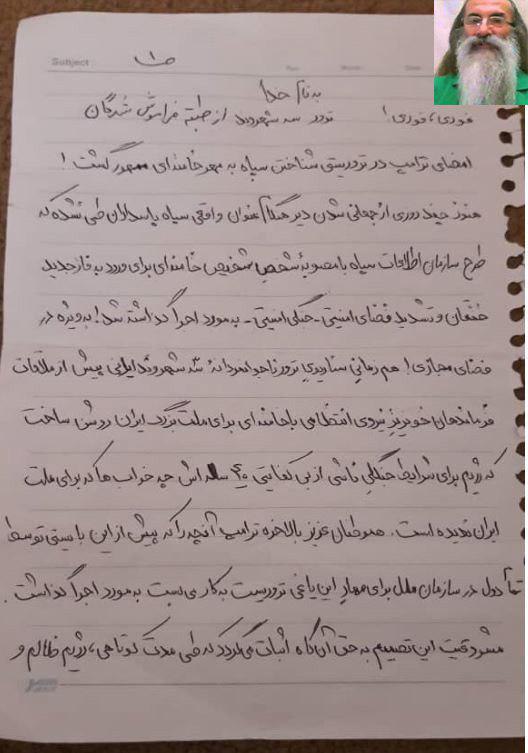 Subject:
ص۱
به نام خدا
فوری، فوری! ترور سه شهروند از طبقه فراموش شدگان
امضای ترامپ در تروریستی شناختن سپاه به مهر خامنه‌ای ممهور گشت!
هنوز چند روزی از جهانی شدن دیر هنگام عنوان واقعی سپاه پاسداران طی نشده که
طرح سازمان اطلاعات سپاه با مصوبهٔ شخصِ شخیص خامنه‌ای برای ورود به فاز جدید
خفقان و تشدید فضای امنیتی - جنگی امنیتی - به مورد اجرا گذاشته شد! به ویژه در
فضای مجازی! هم زمانی سناریوی ترور ناجوانمردانهٔ سه شهروند ایرانی پیش از ملاقات
فرماندهان خونریز نیروی انتظامی با خامنه‌ای برای ملت بزرگ ایران روشن ساخت
که رژیم برای شرایط جنگلی ناشی از بی کفایتی ۴۰ ساله اش چه خواب ها که برای ملت
ایران ندیده است. هموطنان عزیز بالاخره ترامپ آنچه را که پیش از این بایستی توسط
دول در سازمان ملل برای مهار این یاغی تروریست بکار می‌بست به مورد اجرا گذاشت.
مشروعیت این تصمیم به حق آن گاه اثبات می‌گردد که طی مدت کوتاهی، رژیم ظالم و